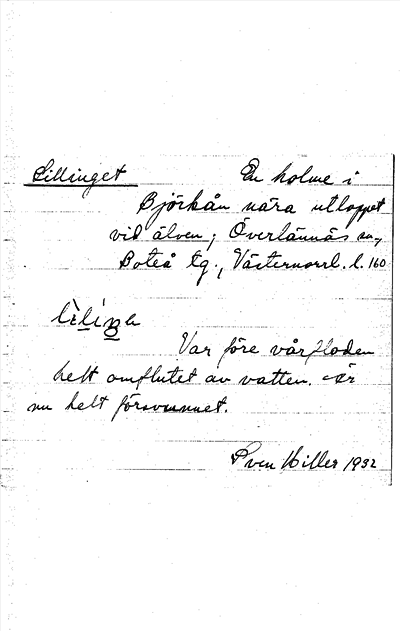 Lillinget En holme i
Björkån nära utloppet
vid älven; Överlännäs sn,
Boteå tg., Västernorrl. l. 160
Var före vårfloden
helt omflutet av vatten. Är
nu helt försvunnet.
Sven Hiller 1932